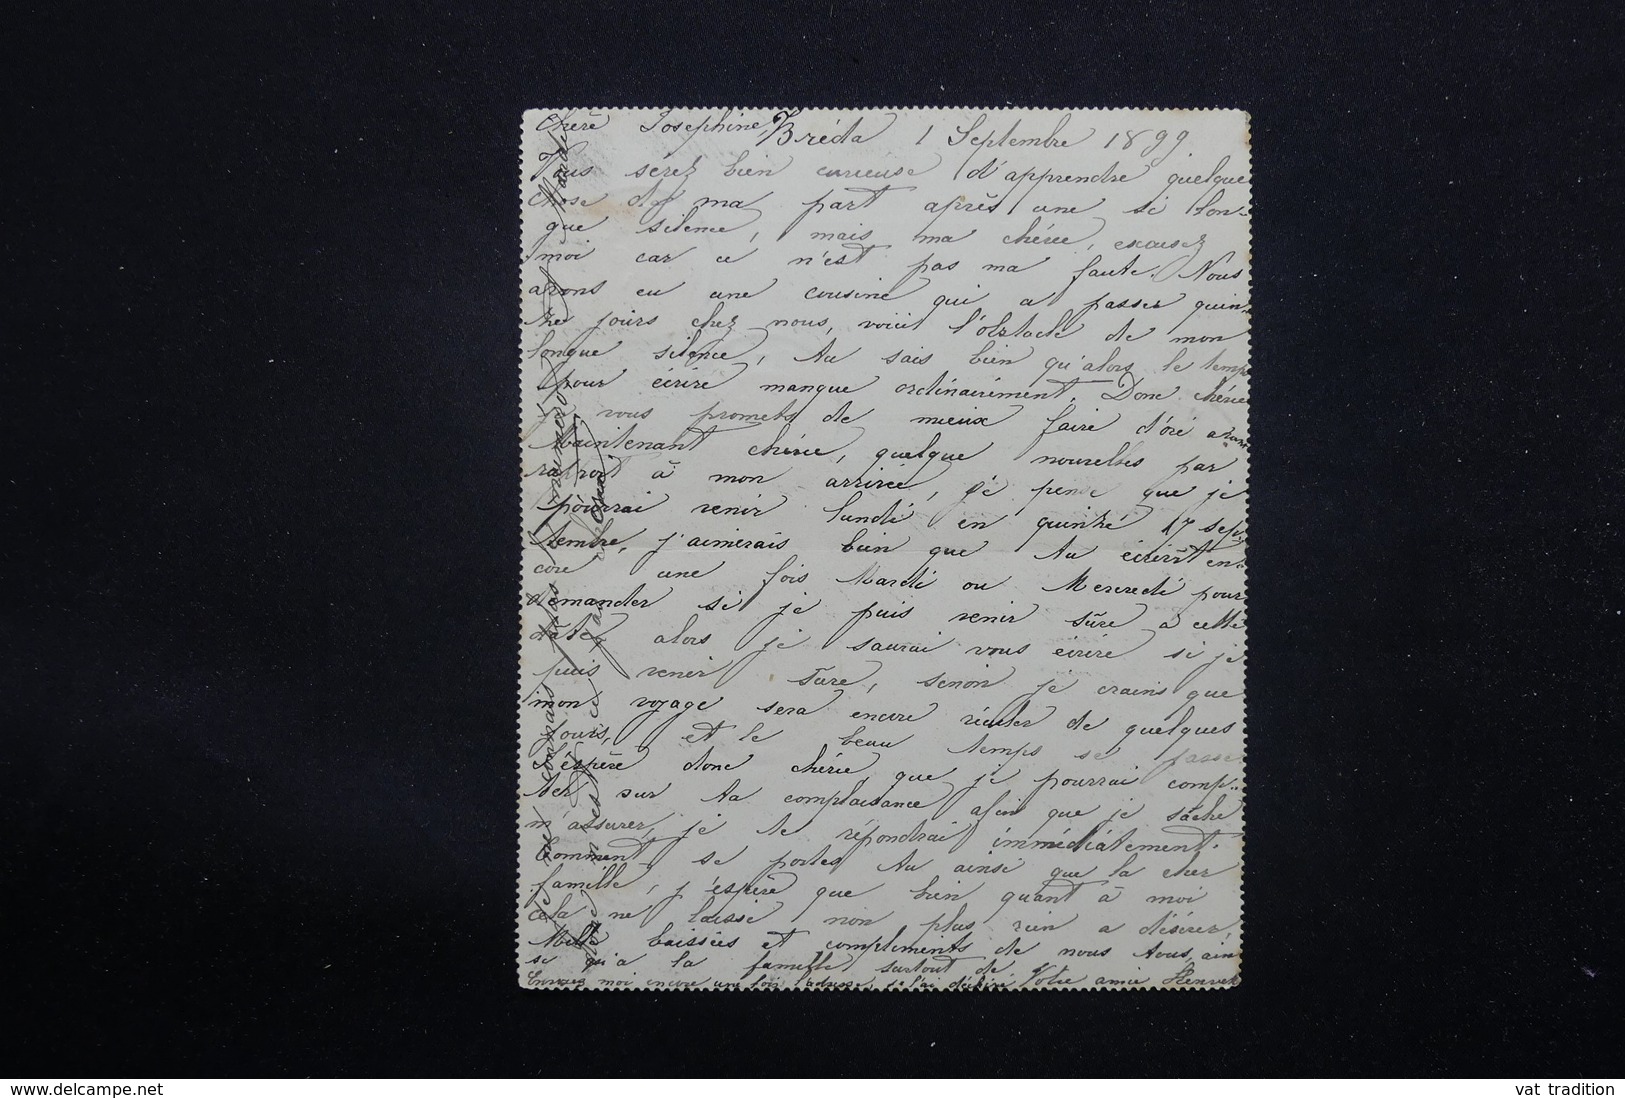 Chère Josephine, Bréda 1 Septembre 1899
Vous sérez bien curieuse d'apprendre quelque
chose de ma part après une si lon-
gue silence, mais ma chérie, excusez
moi car ce n'est pas ma faute. Nous
avons eu une cousine qui a passer quin-
ze jours chez nous, voici l'obstacle de mon
longue silence, tu sais bien qu'alors le temps
pour écrire manque ordinairément. Donc chérie
je vous promets de mieux faire d'ore
Maintenant chérie, quelque nouvelles par
raproit à mon arrivée, je pense que je
pourrai venir lundi en quinze 17 sep-
tembre, j'aimerais bien que tu écrirerst en-
core une fois Mardi ou Mercredi pour
demander si je puis venir sûre à cette
date, alors je saurai vous écrire si je
puis venir sure, sinon je crains que
mon voyage sera encore réculer de quelques
jours, et le beau temps se passe
J'éspère donc chérie que je pourrai comp-
ter sur ta complaisance afin que je sâche
m'assurer, je te répondrai immédiâtement.
Comment se portes tu ainsi que la cher
famille, j'éspère que bien quant à moi
cela ne laisse non plus rien a désirer,
Mille baissées et compléments de nous tous, ain
si qu'a la famille surtout de
Envoyez moi encore une fois l'adresse, je l'ai déchiré Votre amie
www.delcampe.net
vat_tradition